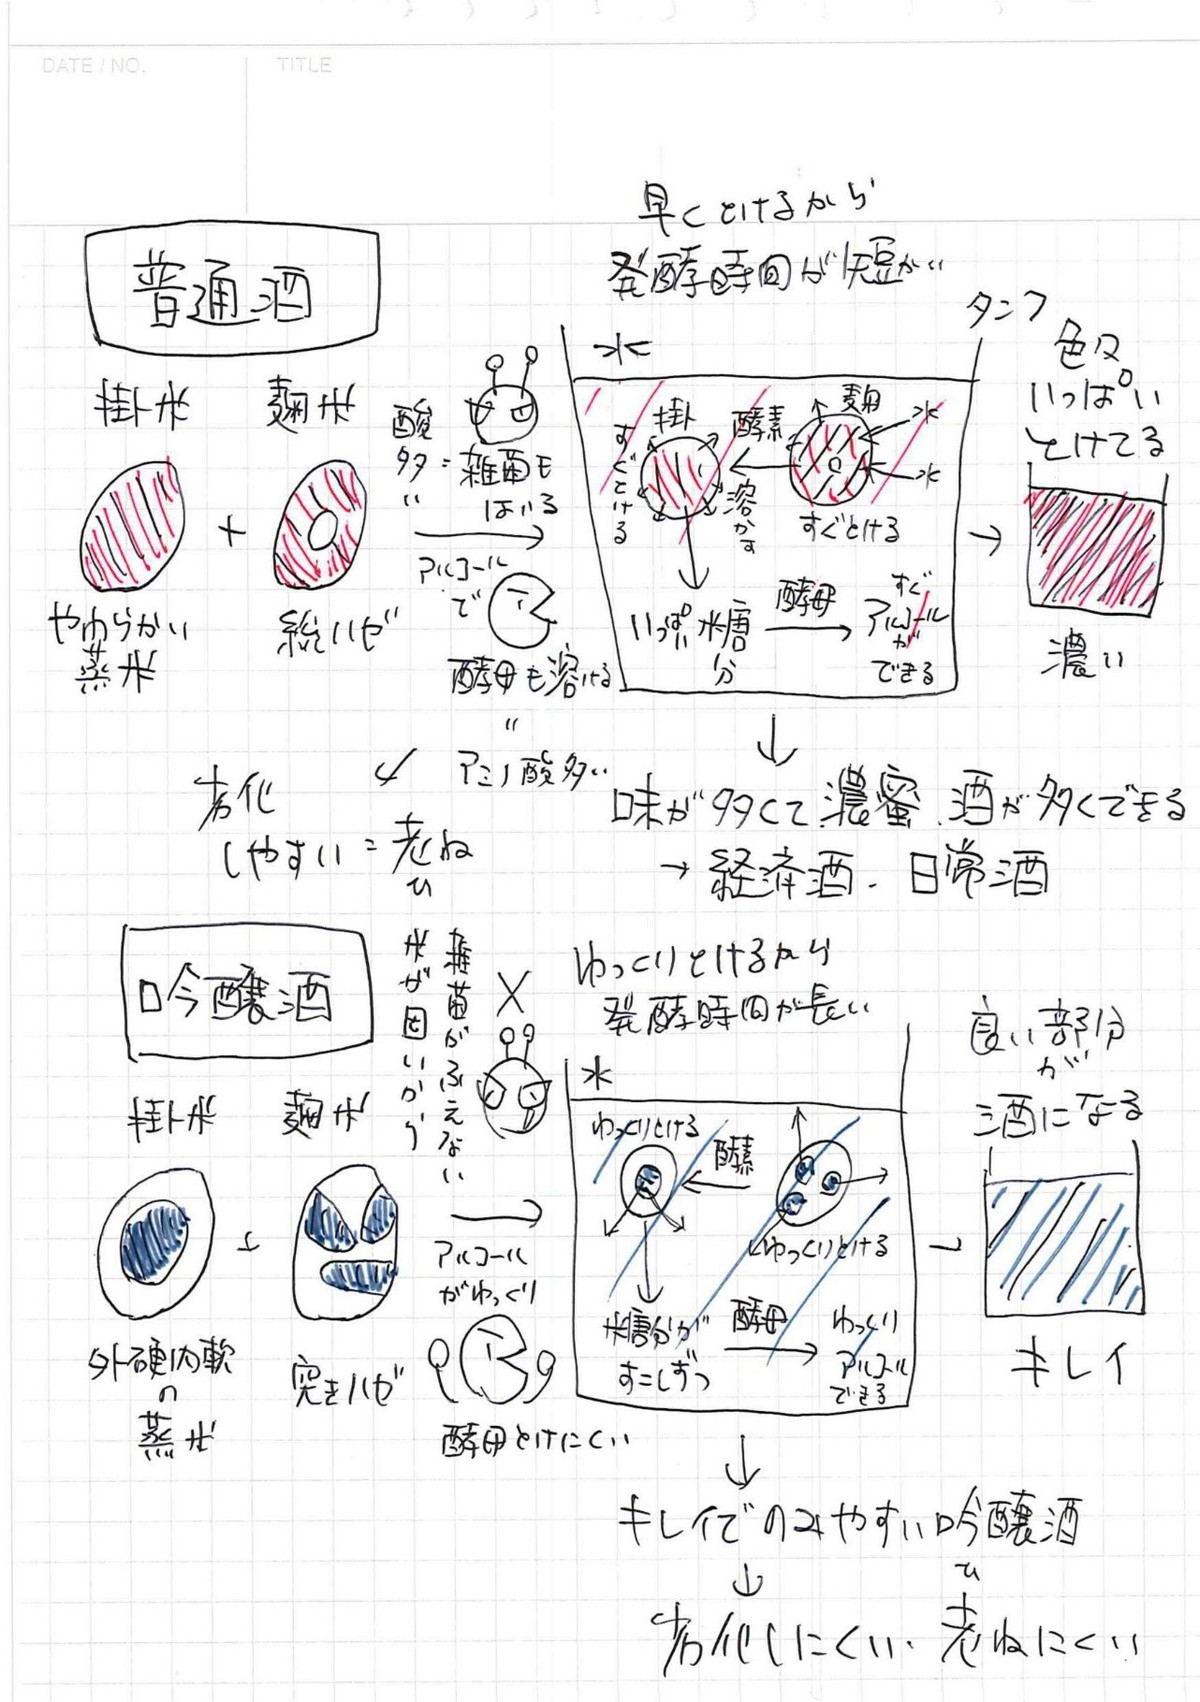 DATE / NO.
TITLE
普通酒
早くとけるから
発酵時間が短かい
タンク
掛け米
麹米
酸
多
い
=
雑菌も
はいる
アルコール
で
やわらかい
蒸米
+
総ハゼ
酵母も溶ける
〃
アミノ酸多い
劣化
しやすい = 老ね
ひ
水
掛け
すぐとける
酵素
溶かす
麹
水
水
すぐとける
いっぱい
糖分
酵母
すぐ
アルコールが
できる
色々
いっぱい
とけてる
濃い
味が多くて濃蜜.酒が多くできる
→ 経済酒.日常酒
吟醸酒
掛け米
麹米
雑菌がふえない
米が固いから
ゆっくりとけるから
発酵時間が長い
外硬内軟
の
蒸米
+
突きハゼ
アルコール
がゆっくり
酵母とけにくい
水
ゆっくりとける
酵素
ゆっくりとける
糖分が
すこしずつ
酵母
ゆっくり
アルコール
できる
良い部分
が
酒になる
キレイ
キレイでのみやすい吟醸酒
劣化しにくい.老ねにくい
ひ